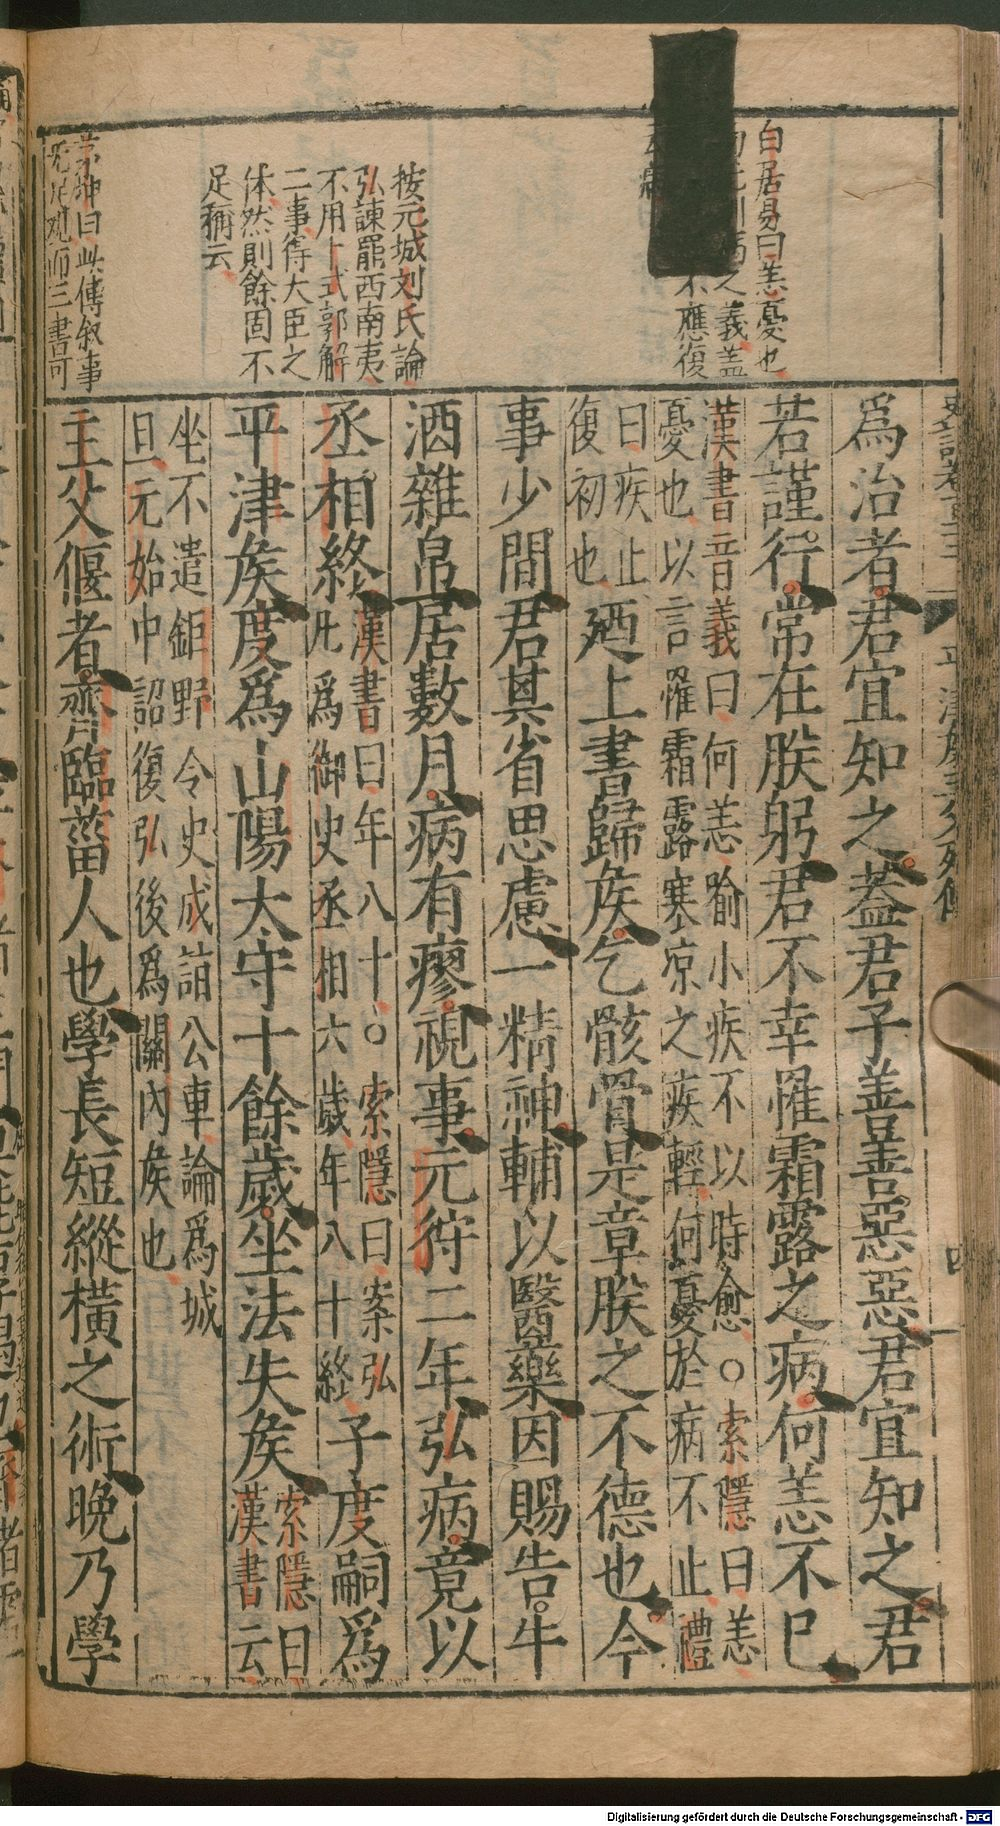 白居易曰恙憂也
之義盖
不應復
按元城刘氏論
弘諌罷西南夷
不用卜式郭解
二事得大臣之
体然則餘固不
足稱云
曰此傳叙事
而三書可
爲治者君宜知之蓋君子善善惡惡君宜知之君
若謹行常在朕躬君不幸罹霜露之病何恙不巳
漢書音義曰何恙喻小疾不以時愈○索隱曰恙
憂也以言罹霜露寒凉之疾輕何憂於病不止禮
曰疾止
復初也
廼上書歸矦乞骸骨是章朕之不德也今
事少間君其省思慮一精神輔以醫藥因賜告牛
酒雜帛居數月病有瘳視事元狩二年弘病竟以
丞相終
漢書曰年八十○索隱曰案弘
凡爲御史丞相六歲年八十終
子度嗣爲
平津矦度爲山陽太守十餘歲坐法失矦
索隱曰
漢書云
坐不遣鉅野令史成詣公車論爲城
旦元始中詔復弘後爲關內矦也
主父偃者齊臨菑人也學長短縱橫之術晚乃學
四
Digitalisierung gefördert durch die Deutsche Forschungsgemeinschaft - DFG